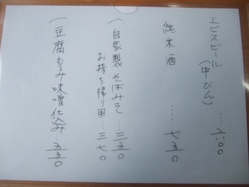 エビスビール(中びん)…六〇〇
純米酒 ……七五〇
一 自家製そばみそ…三五〇
お持ち帰り用…三七〇
一 豆腐もろみ味噌仕込み 五五〇